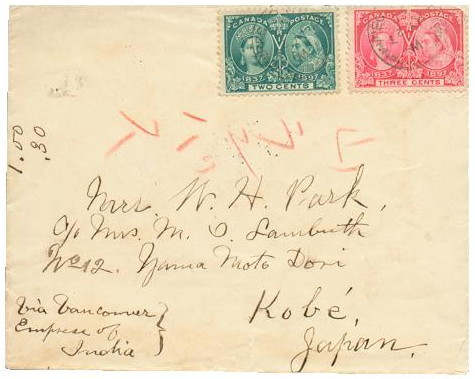 CANADA POSTAGE
1837 1897
TWO CENTS
CANADA POSTAGE
1837 1897
THREE CENTS
1.00
.30
Mrs W. H. Park,
c/o Mrs. M. I. Lambuth
No 12. Yama Moto Dori
Kobé,
Japan.
Via Vancouver
Emprese of
India